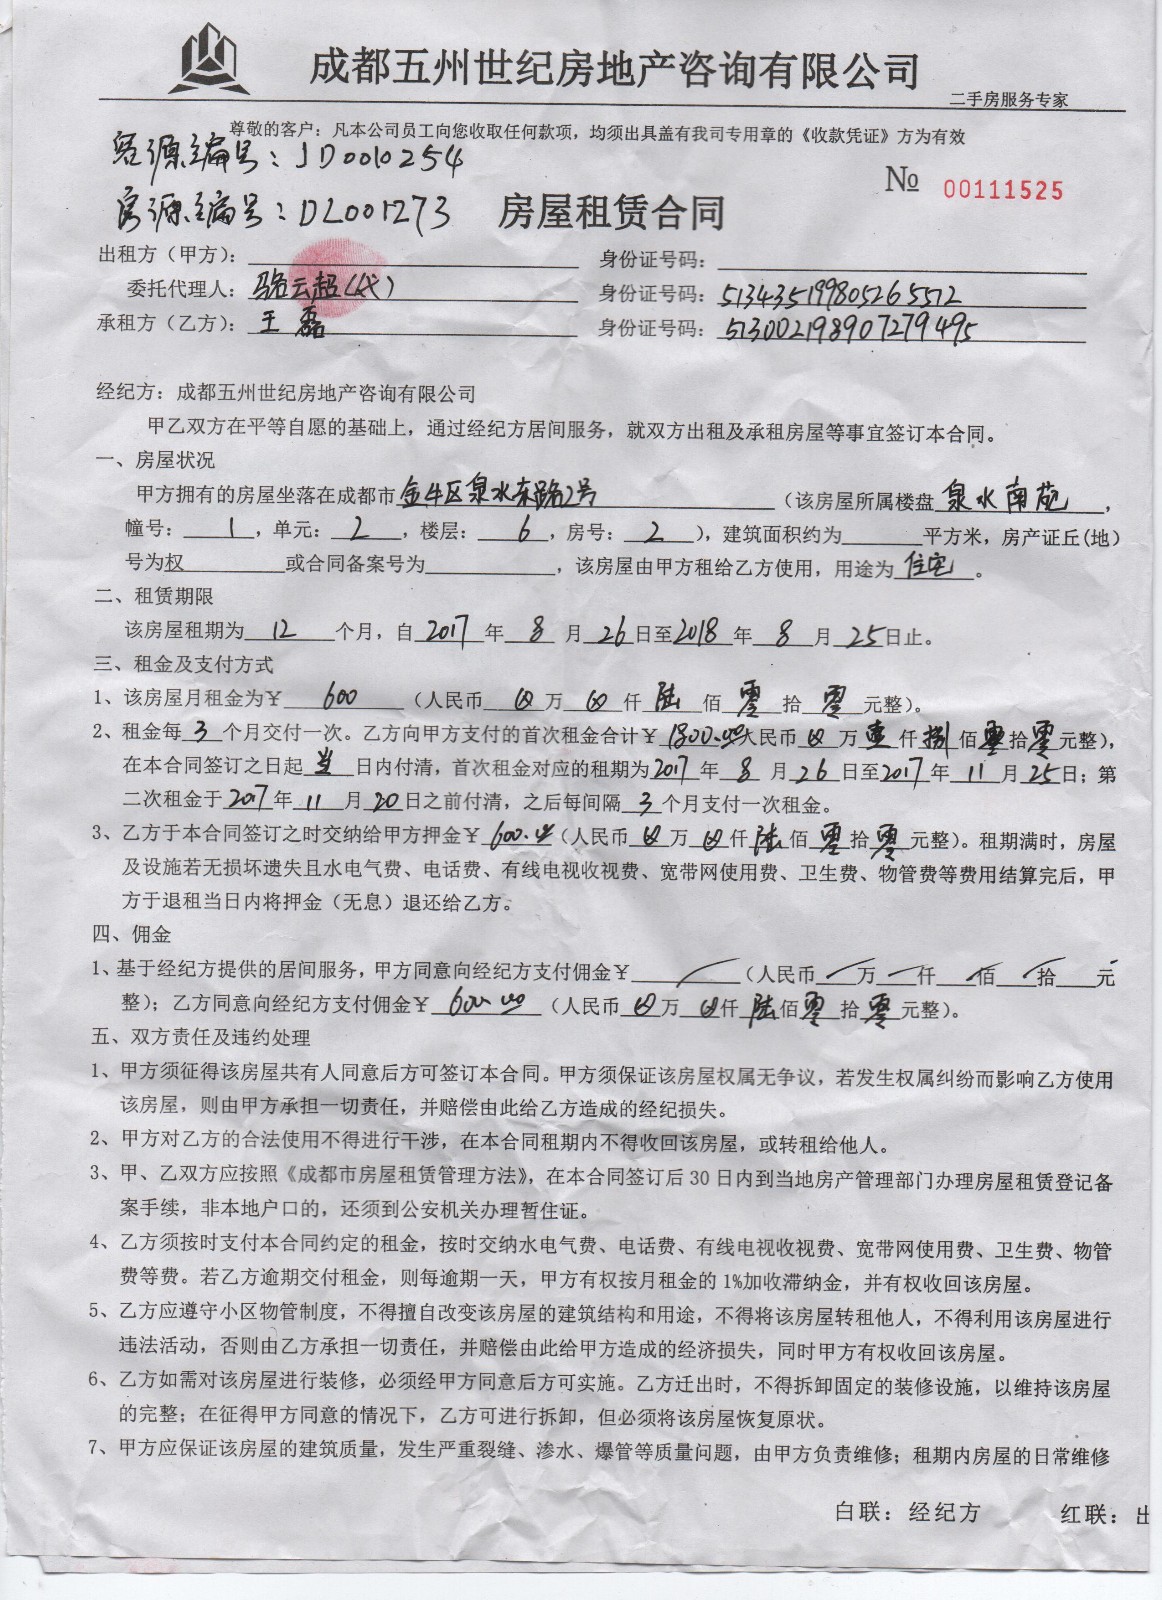 成都五州世纪房地产咨询有限公司
二手房服务专家
尊敬的客户：凡本公司员工向您收取任何款项，均须出具盖有我司专用章的《收款凭证》方为有效
客源编号：JD0010254
№ 00111525
房源编号：DL001273 房屋租赁合同
出租方（甲方）： 身份证号码：
委托代理人：骆云超(代) 身份证号码：513435199805265512
承租方（乙方）：王磊 身份证号码：513002198907279495
经纪方：成都五州世纪房地产咨询有限公司
甲乙双方在平等自愿的基础上，通过经纪方居间服务，就双方出租及承租房屋等事宜签订本合同。
一、房屋状况
甲方拥有的房屋坐落在成都市金牛区泉水东路2号（该房屋所属楼盘泉水南苑，
幢号：1，单元：2，楼层：6，房号：2），建筑面积约为 平方米，房产证丘(地)
号为权 或合同备案号为 ，该房屋由甲方租给乙方使用，用途为住宅。
二、租赁期限
该房屋租期为12个月，自2017年8月26日至2018年8月25日止。
三、租金及支付方式
1、该房屋月租金为￥600（人民币 万 仟陆佰零拾零元整）。
2、租金每3个月交付一次。乙方向甲方支付的首次租金合计￥1800.00人民币 万壹仟捌佰零拾零元整），
在本合同签订之日起当日内付清，首次租金对应的租期为2017年8月26日至2017年11月25日；第
二次租金于2017年11月20日之前付清，之后每间隔3个月支付一次租金。
3、乙方于本合同签订之时交纳给甲方押金￥600.00（人民币 万 仟陆佰零拾零元整）。租期满时，房屋
及设施若无损坏遗失且水电气费、电话费、有线电视收视费、宽带网使用费、卫生费、物管费等费用结算完后，甲
方于退租当日内将押金（无息）退还给乙方。
四、佣金
1、基于经纪方提供的居间服务，甲方同意向经纪方支付佣金￥ （人民币 万 仟 佰 拾 元
整）；乙方同意向经纪方支付佣金￥600.00（人民币 万 仟陆佰零拾零元整）。
五、双方责任及违约处理
1、甲方须征得该房屋共有人同意后方可签订本合同。甲方须保证该房屋权属无争议，若发生权属纠纷而影响乙方使用
该房屋，则由甲方承担一切责任，并赔偿由此给乙方造成的经纪损失。
2、甲方对乙方的合法使用不得进行干涉，在本合同租期内不得收回该房屋，或转租给他人。
3、甲、乙双方应按照《成都市房屋租赁管理方法》，在本合同签订后30日内到当地房产管理部门办理房屋租赁登记备
案手续，非本地户口的，还须到公安机关办理暂住证。
4、乙方须按时支付本合同约定的租金，按时交纳水电气费、电话费、有线电视收视费、宽带网使用费、卫生费、物管
费等费。若乙方逾期交付租金，则每逾期一天，甲方有权按月租金的1%加收滞纳金，并有权收回该房屋。
5、乙方应遵守小区物管制度，不得擅自改变该房屋的建筑结构和用途，不得将该房屋转租他人，不得利用该房屋进行
违法活动，否则由乙方承担一切责任，并赔偿由此给甲方造成的经济损失，同时甲方有权收回该房屋。
6、乙方如需对该房屋进行装修，必须经甲方同意后方可实施。乙方迁出时，不得拆卸固定的装修设施，以维持该房屋
的完整；在征得甲方同意的情况下，乙方可进行拆卸，但必须将该房屋恢复原状。
7、甲方应保证该房屋的建筑质量，发生严重裂缝、渗水、爆管等质量问题，由甲方负责维修；租期内房屋的日常维修
白联：经纪方 红联：出